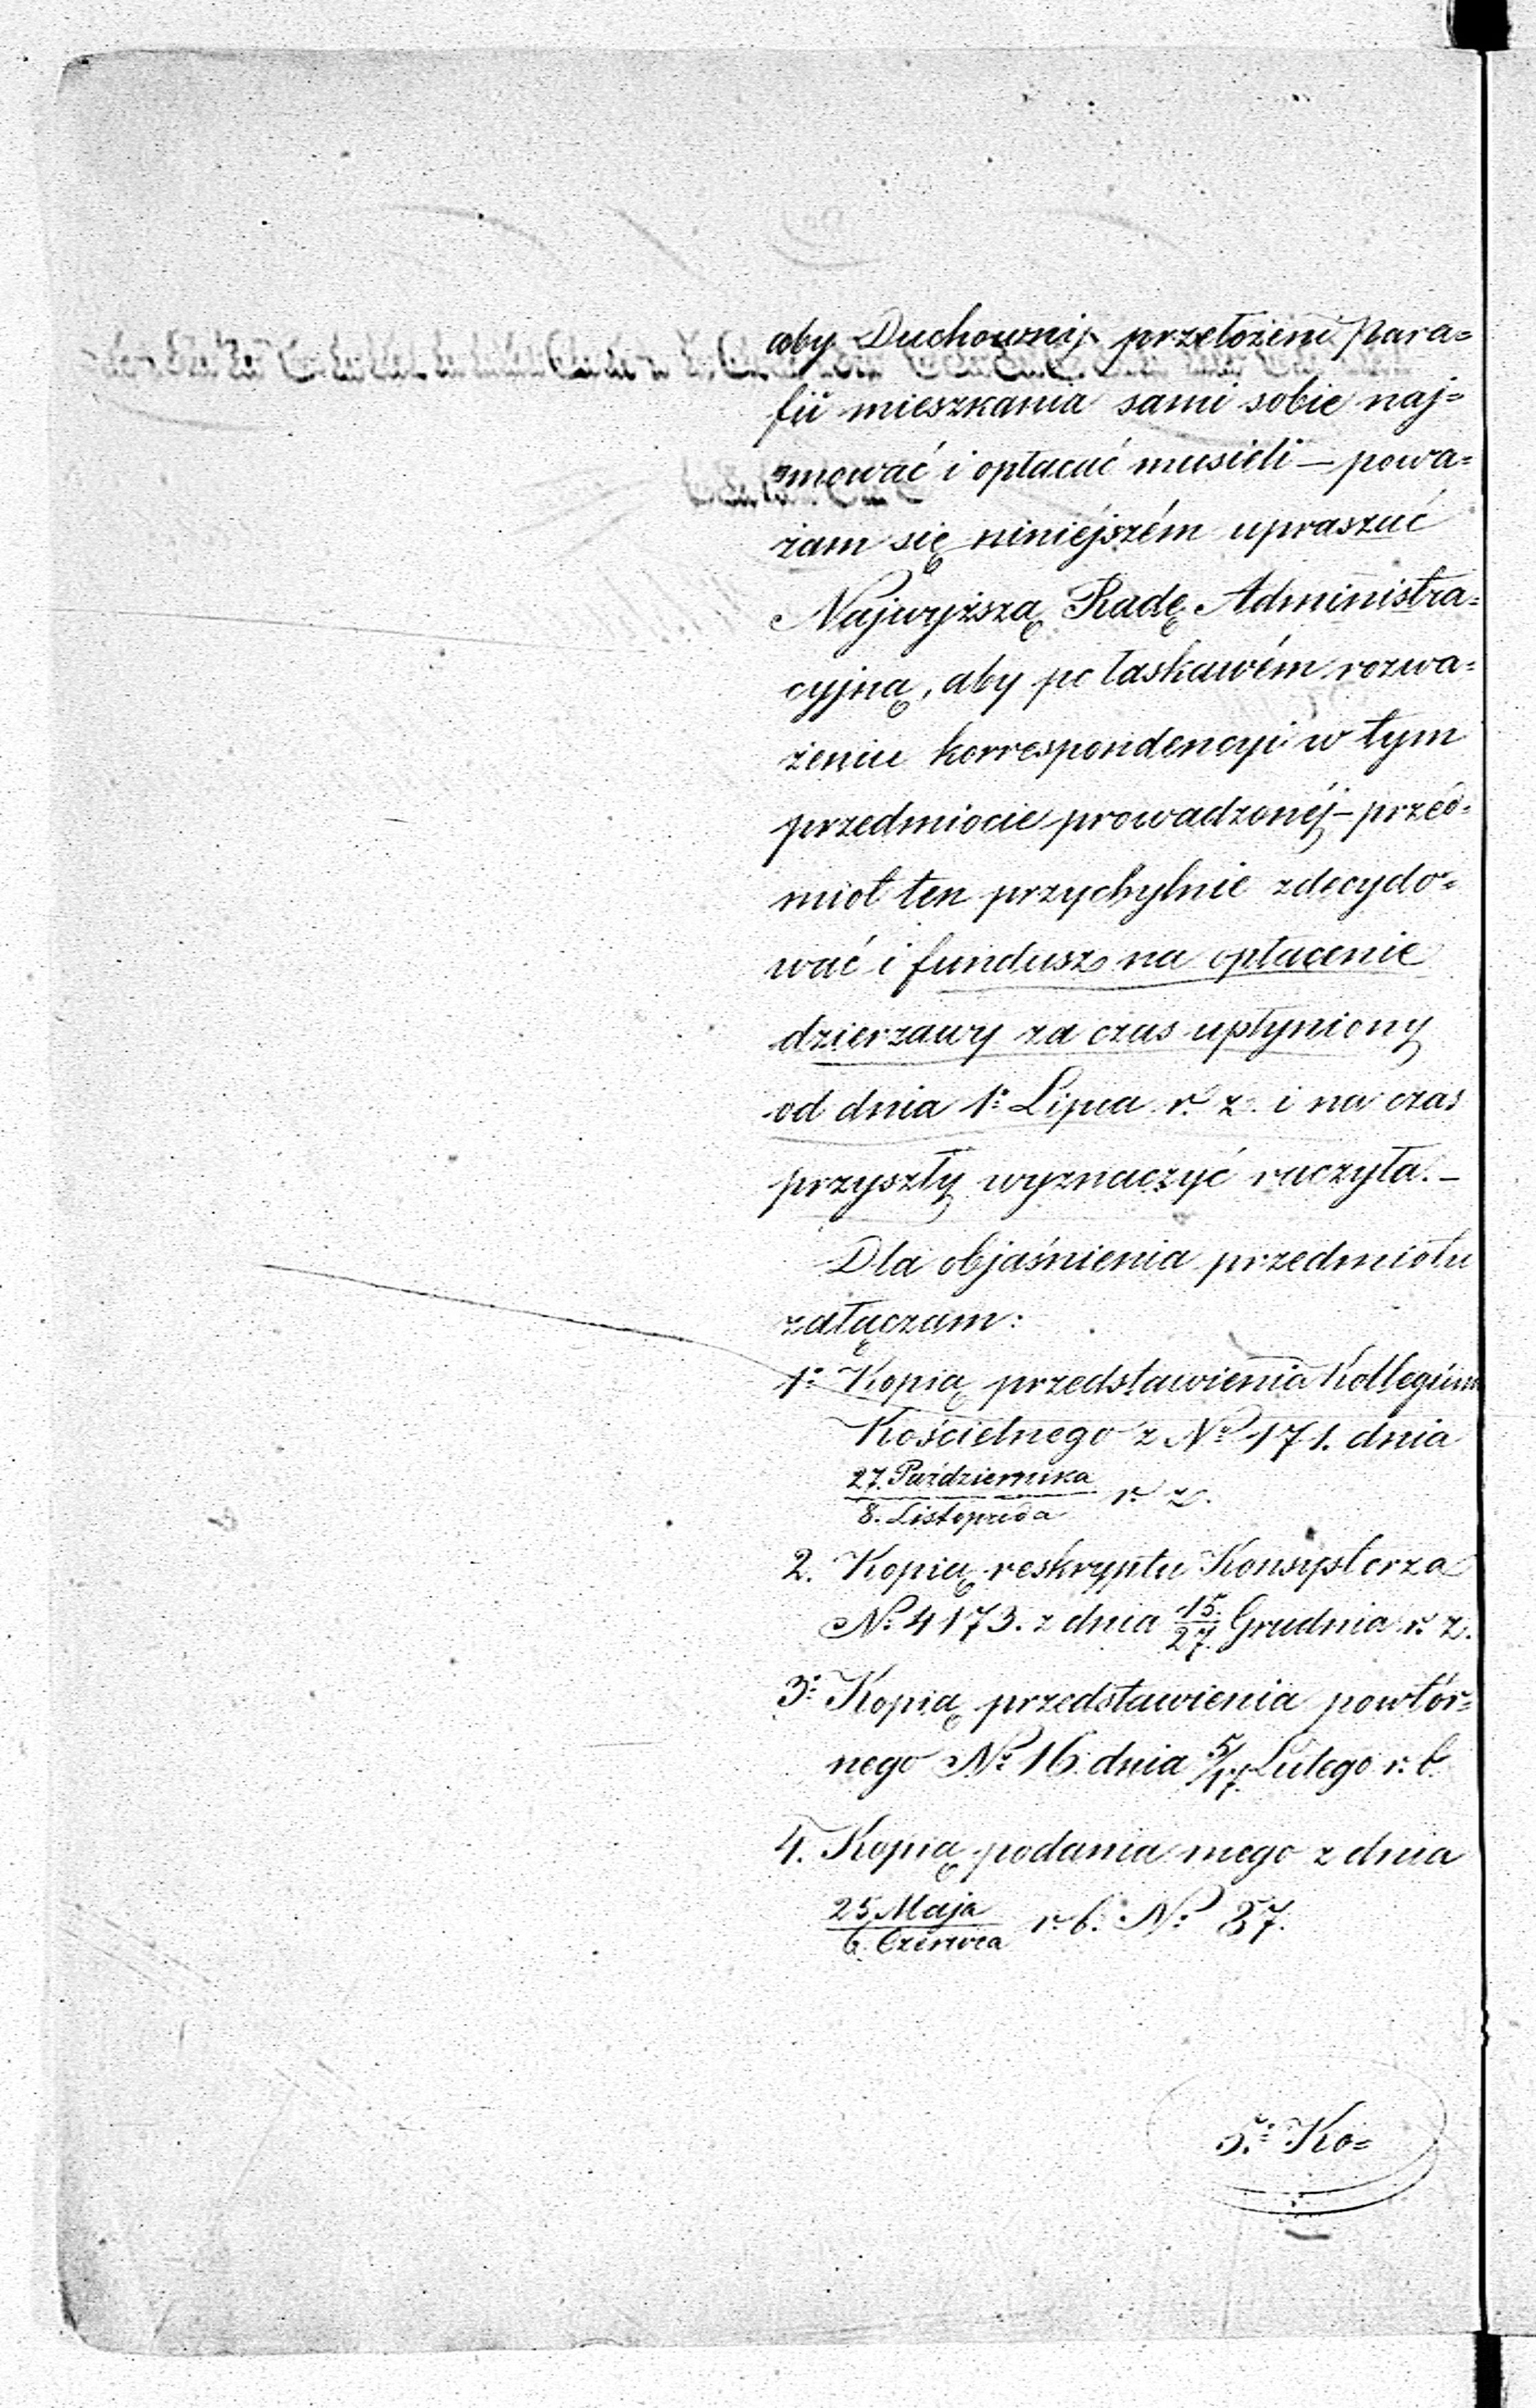 aby Duchowni przełożeni Para=
fii mieszkania sami sobie naj=
mować i opłacać musieli — powa=
żam się niniejszém upraszać
Najwyższą Radę Administra=
cyjną, aby po łaskawém rozwa=
żeniu korrespondencyi w tym
przedmiocie prowadzonéj — przed=
miot ten przychylnie zdecydo=
wać i fundusz na opłacenie
dzierzawy za czas upłyniony
od dnia 1º Lipca r. z. i na czas
przyszły wyznaczyć raczyła. —
Dla objaśnienia przedmiotu
załączam:
1º Kopią przedstawienia Kollegium
Kościelnego z Nº 171. dnia
27. Października
8. Listopada r. z.
2. Kopią reskryptu Konsystorza
Nº 4173. z dnia 15/27 Grudnia r. z.
3º Kopią przedstawienia powtór=
nego Nº 16. dnia 5/17 Lutego r. b.
4. Kopią podania mego z dnia
25 Maja
6. Czerwca r. b. Nº 87.
5º Ko=